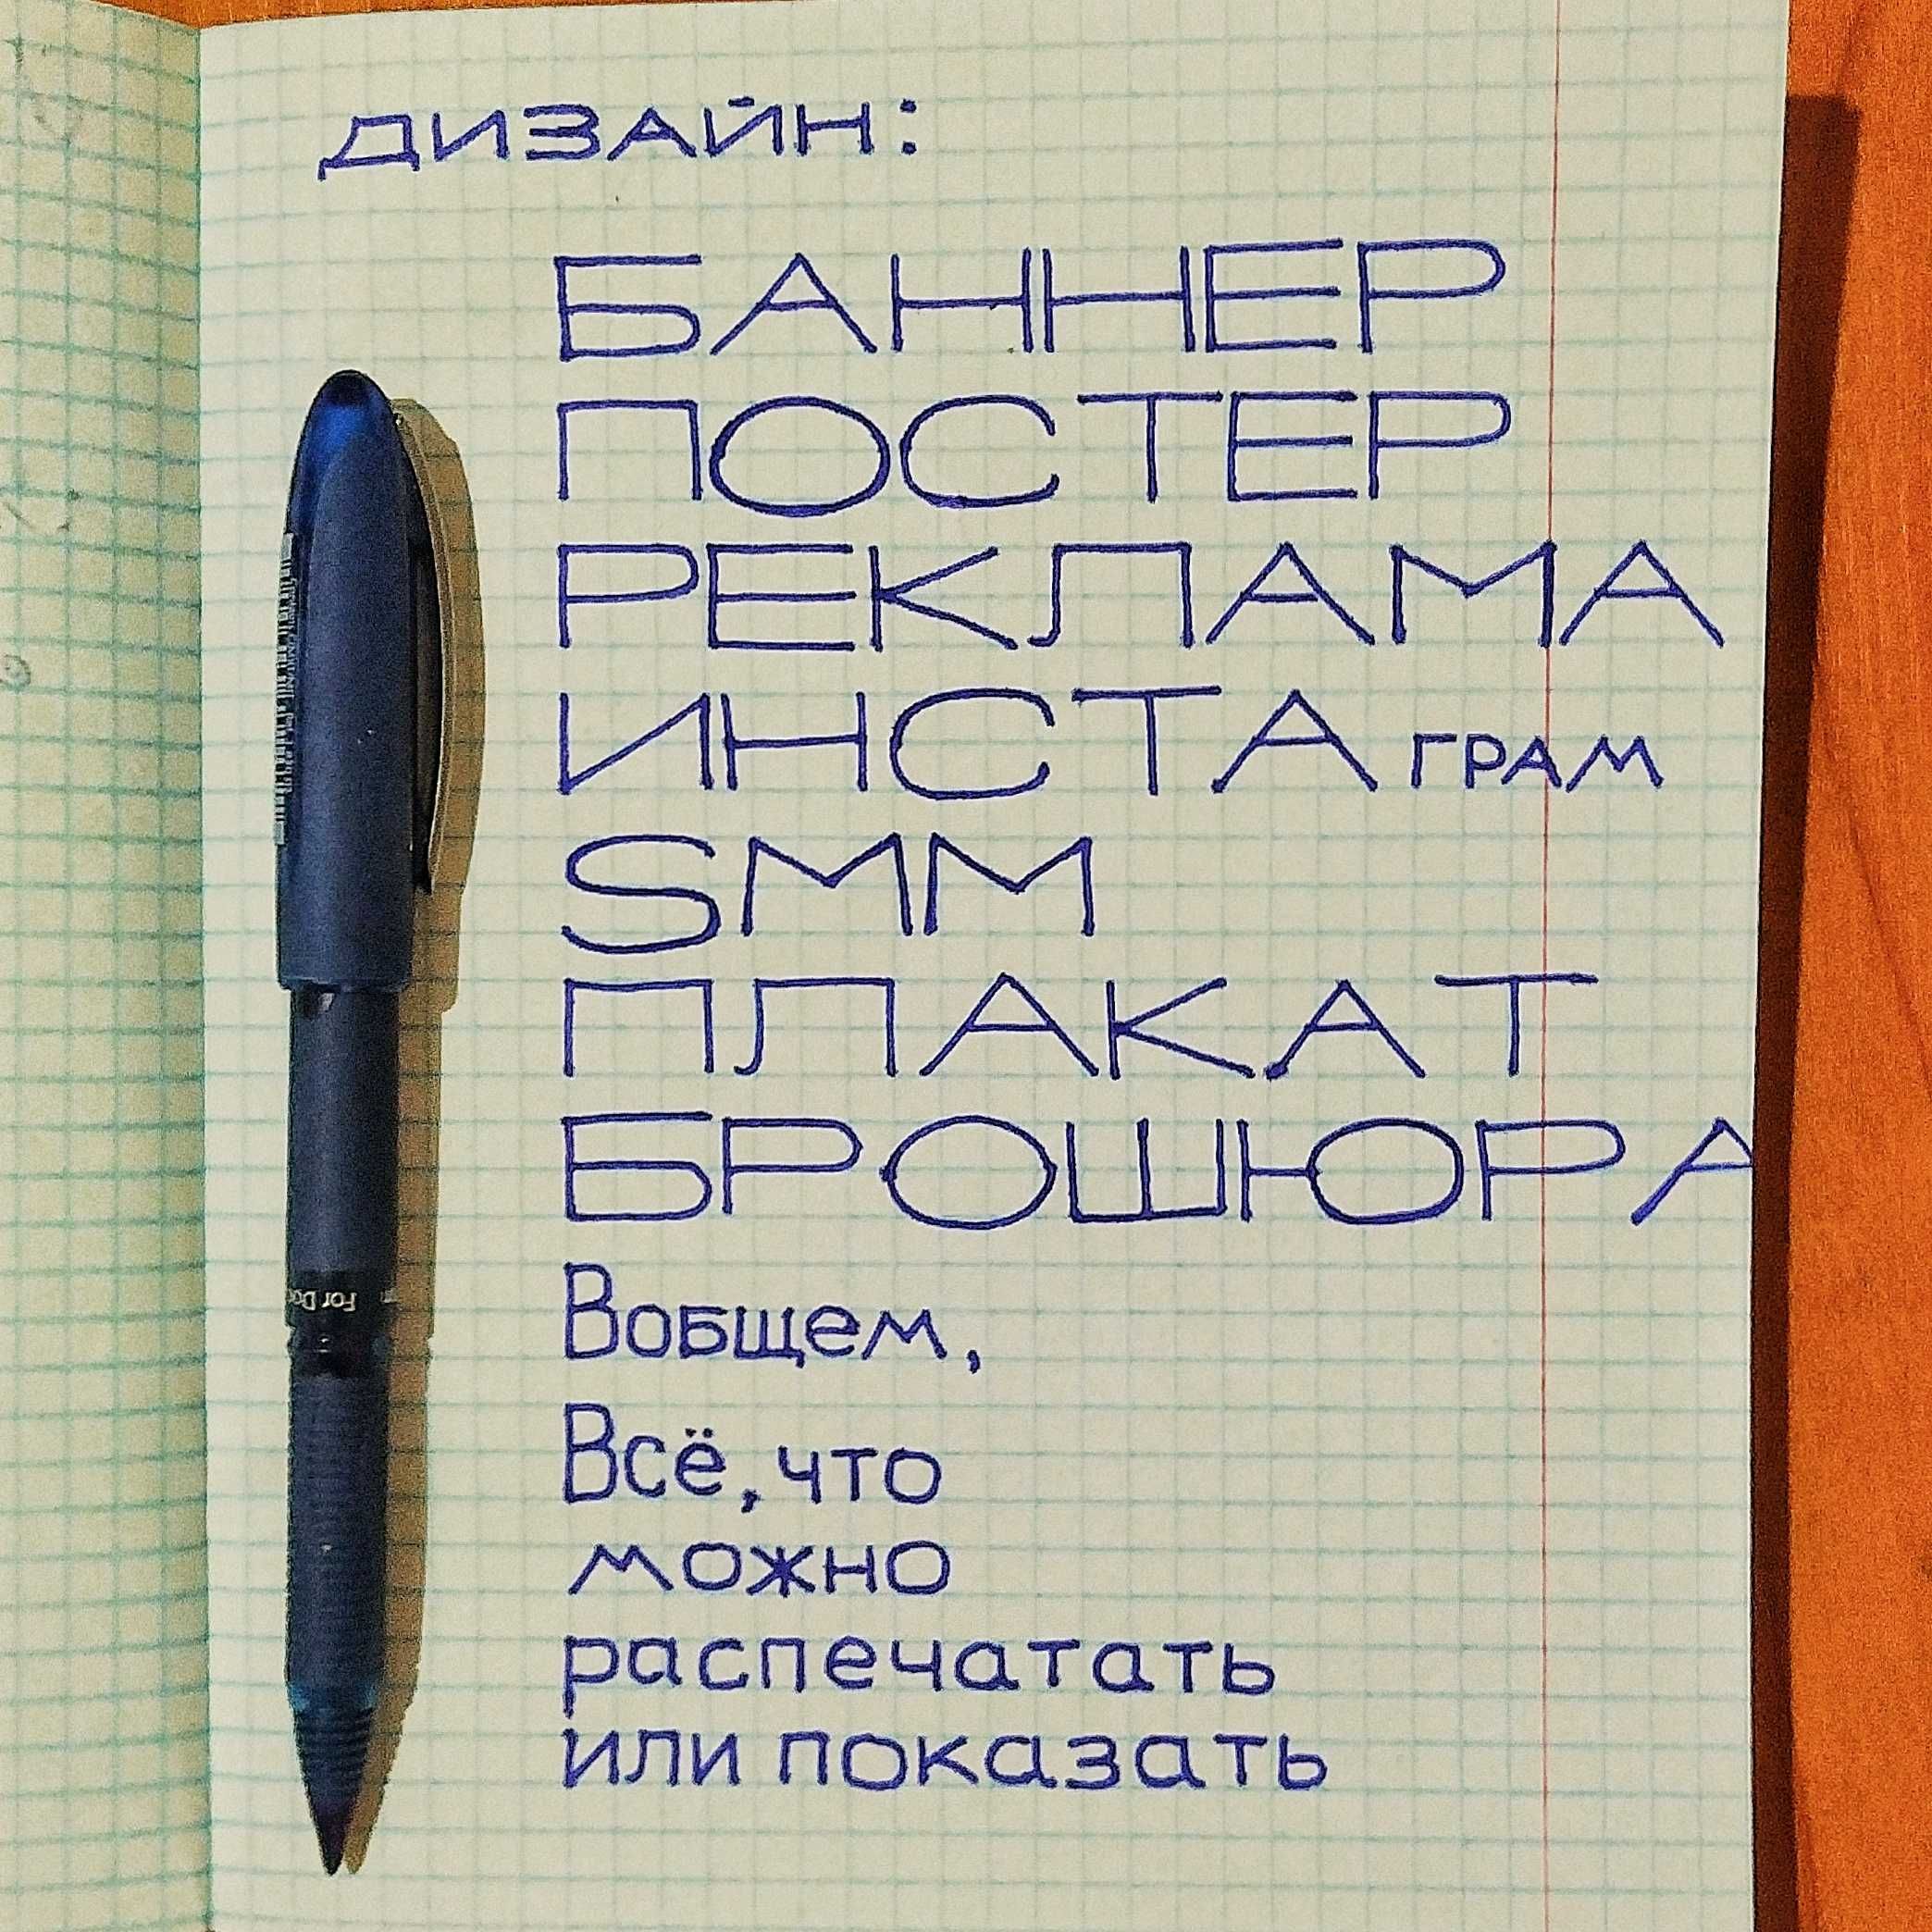 ДИЗАЙН:
БАННЕР
ПОСТЕР
РЕКЛАМА
ИНСТАГРАМ
SMM
ПЛАКАТ
БРОШЮРА
Вобщем,
Всё, что
можно
распечатать
или показать
For Do